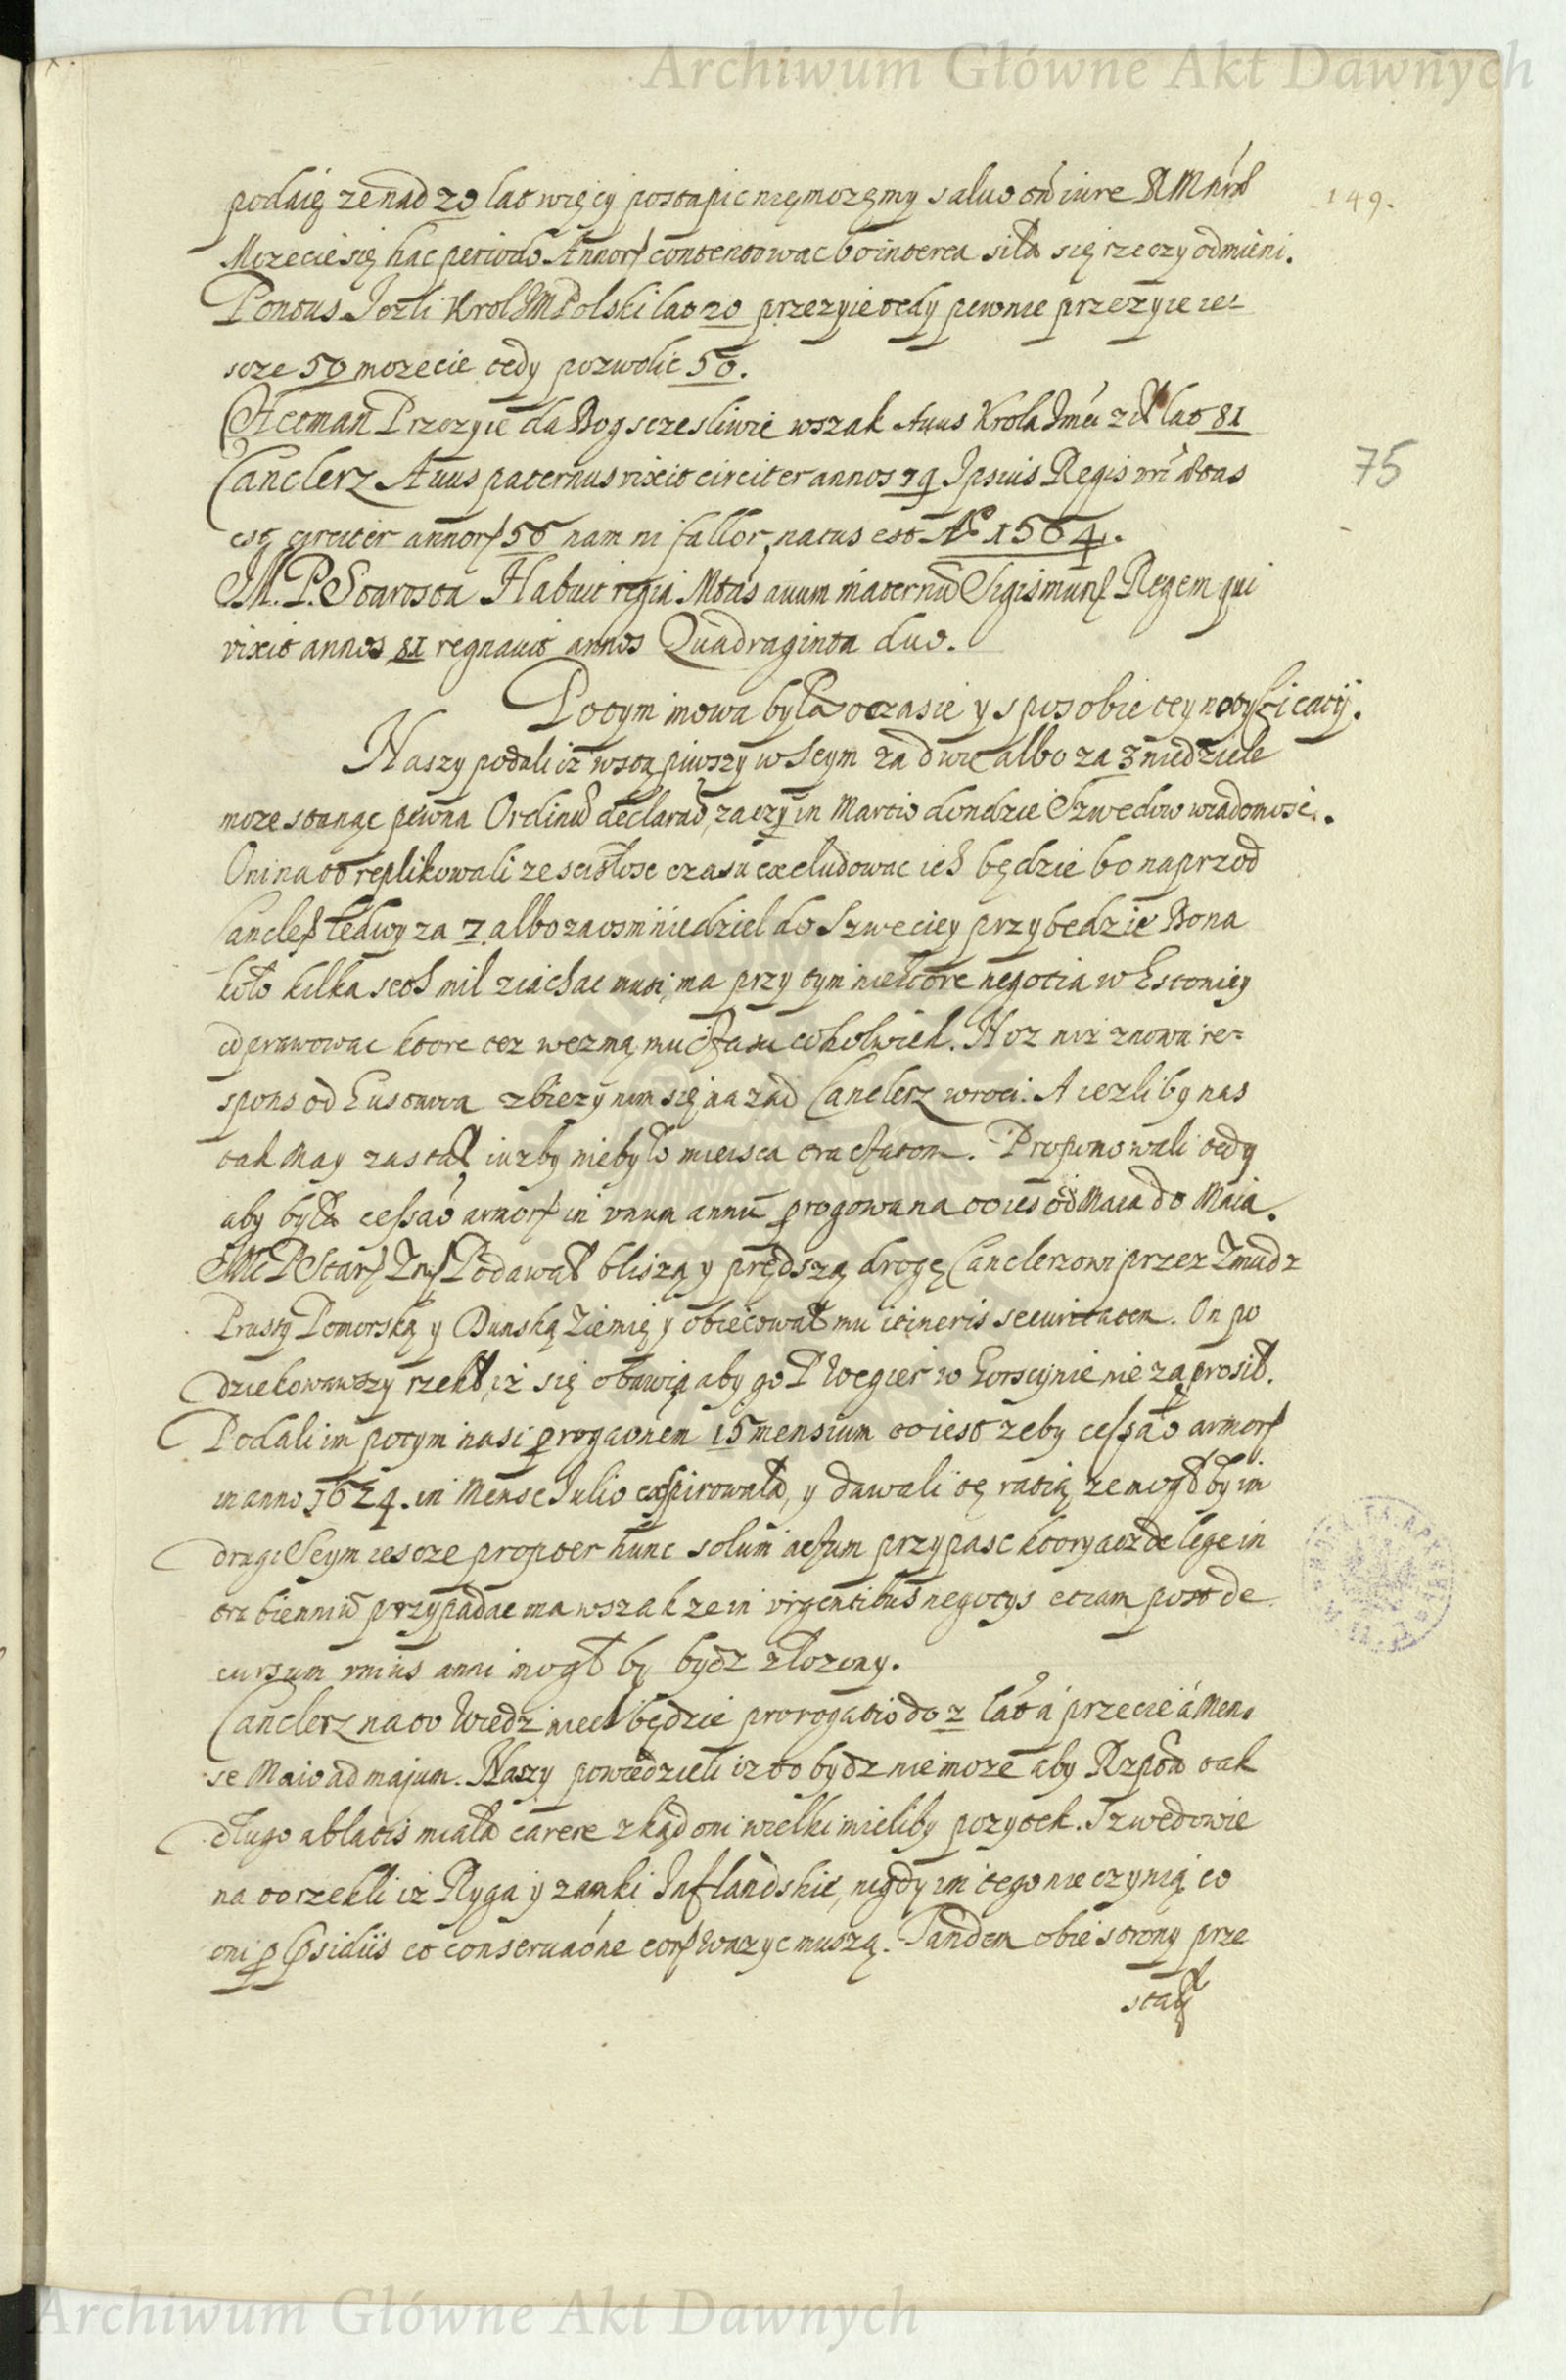 Archiwum Główne Akt Dawnych
149.
podaię ze nad 20 lat więcy postąpic nięmozęmy saluo tn̄ iure
Mozecie się hac periodo Annorꝝ contentowac bo interea siła się rzeczy odmieni.
Pontus Jezli Krol JM Polski lat 20 przezyie tedy pewnie przezyie ie-
scze 50 mozecie tedy pozwolic 50.
Hetman Przezyie da Bog sczesliwie wszak Auus Krola Jmci zył lat 81
Canclerz Auus paternus vixit circiter annos 79 Ipsius Regis vrī ætas
75
est circiter annorꝝ 56 nam ni fallor, natus est Aº 1564.
JM. P. Starosta Habuit regia Mtas auum maternū Sigismunꝝ Regem qui
vixit annos 81 regnauit annos Quadraginta duo.
Potym mowa była o czasie y sposobie tey notyficatij.
Naszy podali iz wstąpiwszy w Seym za dwie albo za 3 niedziele
moze stanąc pewna Ordinū declaratō, zaczym in Martio dondzie Szwedow wiadomosc.
Oni na to replikowali ze scisłosc czasu excludowac ich będzie bo naprzod
Canclerꝝ ledwy za 7 albo za osm niedziel do Szweciey przybędzie Bo na
koło kilka seth mil ziachac musi, ma przy tym niektore negotia w Estoniey
odprawowac ktore tez wezmą mu czasu cokolwiek. Noz niz znowu re-
spons od Gustawa zbiezy nim się na zad Canclerz wroci. A iezliby nas
tak May zastał, iuzby niebyło mieisca tractatom. Proponowali tedy
aby była cessaō armorꝝ in vnum annū progowana to ies od Maia do Maia.
JMc P Starꝝ Zmꝝ Podawał bliszą y prędszą drogę Canclerzowi przez Zmudz
Prusy Pomorską y Dunską Ziemię y obiecował mu itineris securitatem. On po
dziekowawszy rzekł, iz się obawia aby go P Węgier w Gorscynie nie zaprosił.
Podali im potym nasi progaonem 15 mensium to iest zeby cessatō armorꝝ
in anno 1624. in Mense Julio exspirowała, y dawali tę ratią ze mogłby im
drugi Seym iescze propter hunc solum actum przypasc ktory acz de lege in
biennio przypadac ma wszakze in vrgentibus negotys etiam post de
cursum vnius anni mogł by bydz złozony.
Canclerz na to Wiedz niech będzie prorogatio do 2 lat a przecie a Men-
se Maio ad majum. Naszy powiedzieli iz to bydz nie moze aby Rzpta tak
długo ablatis miała carere z kąd oni wielki mieliby pozytek. Szwedowie
na to rzekli iz Ryga y zamki Inflandskie, nigdy im tego nie czynią co
oni p̱ psidiis et conseruaōne eorꝝ wazyc muszą. Tandem obie strony prze
stały
Archiwum Główne Akt Dawnych